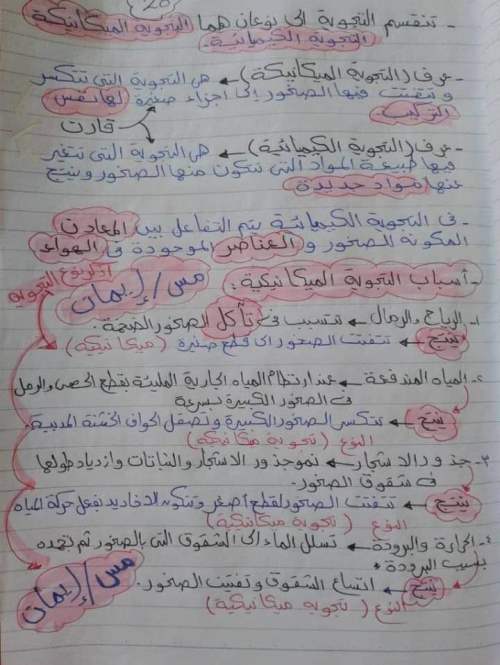 28
- تنقسم التجوية الى نوعان هما التجوية الميكانيكية
التجوية الكيميائية.
- عرف (التجوية الميكانيكة) ← هى التجوية التى تتكسر
وتتفتت فيها الصخور إلى أجزاء صغيرة لها نفس
التركيب.
قارن
- عرف (التجوية الكيميائية) ← هى التجوية التى تتغير
فيها طبيعة المواد التى تتكون منها الصخور وينتج
عنها مواد جديدة
- فى التجوية الكيميائية يتم التفاعل بين المعادن
المكونه للصخور و العناصر الموجودة فى الهواء
اذكر نوع التجوية
مس/إيمان
- أسباب التجوية الميكانيكية:
١- الرياح والرمال ← تتسبب فى تآكل الصخور الضخمة.
ينتج ← تفتت الصخور الى قطع صغيرة (ميكانيكية)
٢- المياه المندفعة ← عند ارتطام المياه الجارية المليئة بقطع الحصى والرمل
فى الصخور الكبيرة بسرعة
ينتج ← تتكسر الصخور الكبيرة وتصقل الحواف الخشنة المدببة.
النوع (تجوية ميكانيكية)
٣- جذور الاشجار ← نمو جذور الاشجار والنباتات وازدياد طولها
فى شقوق الصخور.
ينتج ← تتفتت الصخور لقطع أصغر وتتكون الاخاديد بفعل حركة المياه
النوع (تجوية ميكانيكية)
٤- الحرارة والبرودة ← تسلل الماء الى الشقوق التى بالصخور ثم تجمده
بسبب البرودة.
ينتج ← اتساع الشقوق وتفتيت الصخور.
النوع (تجوية ميكانيكية)
مس/إيمان